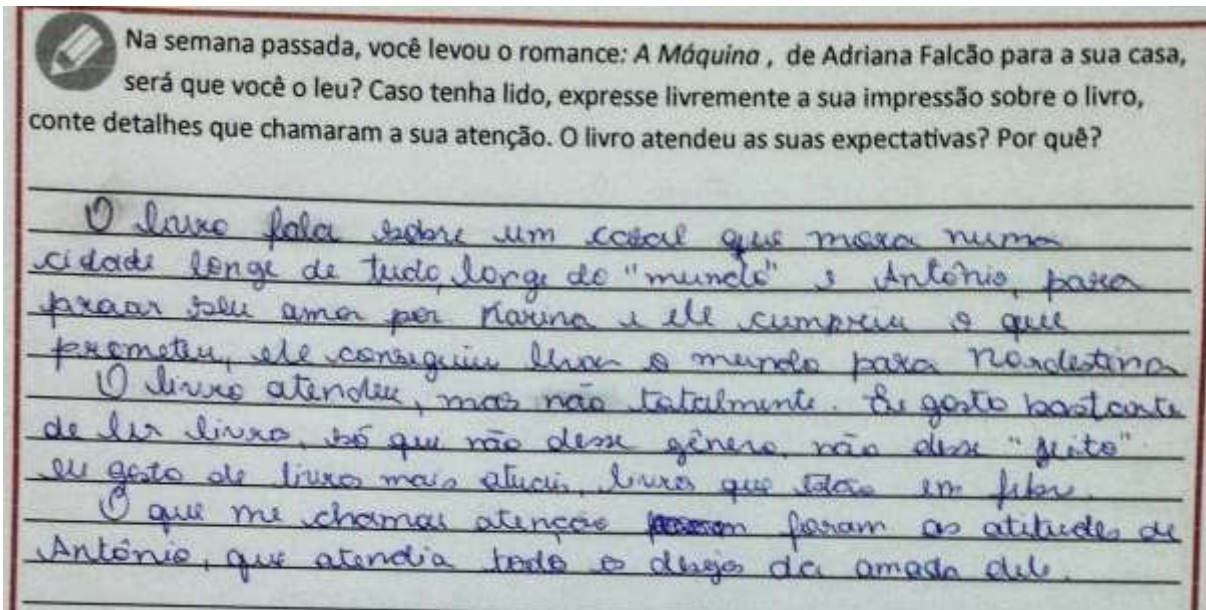 Na semana passada, você levou o romance: A Máquina , de Adriana Falcão para a sua casa,
será que você o leu? Caso tenha lido, expresse livremente a sua impressão sobre o livro,
conte detalhes que chamaram a sua atenção. O livro atendeu as suas expectativas? Por quê?
O livro fala sobre um casal que mora numa
cidade longe de tudo, longe do "mundo" e Antônio, para
seu amor por Karina e ele cumpriu o que
prometeu, ele conseguiu levar o mundo para Nordestina
O livro atendeu, mas não totalmente. Eu gosto bastante
de ler livro, só que não desse gênero, não desse "jeito"
eu gosto de livro mais atuais, livros que em
O que me chamou atenção foram as atitudes de
Antônio, que atendia todo o desejo da amada dele.